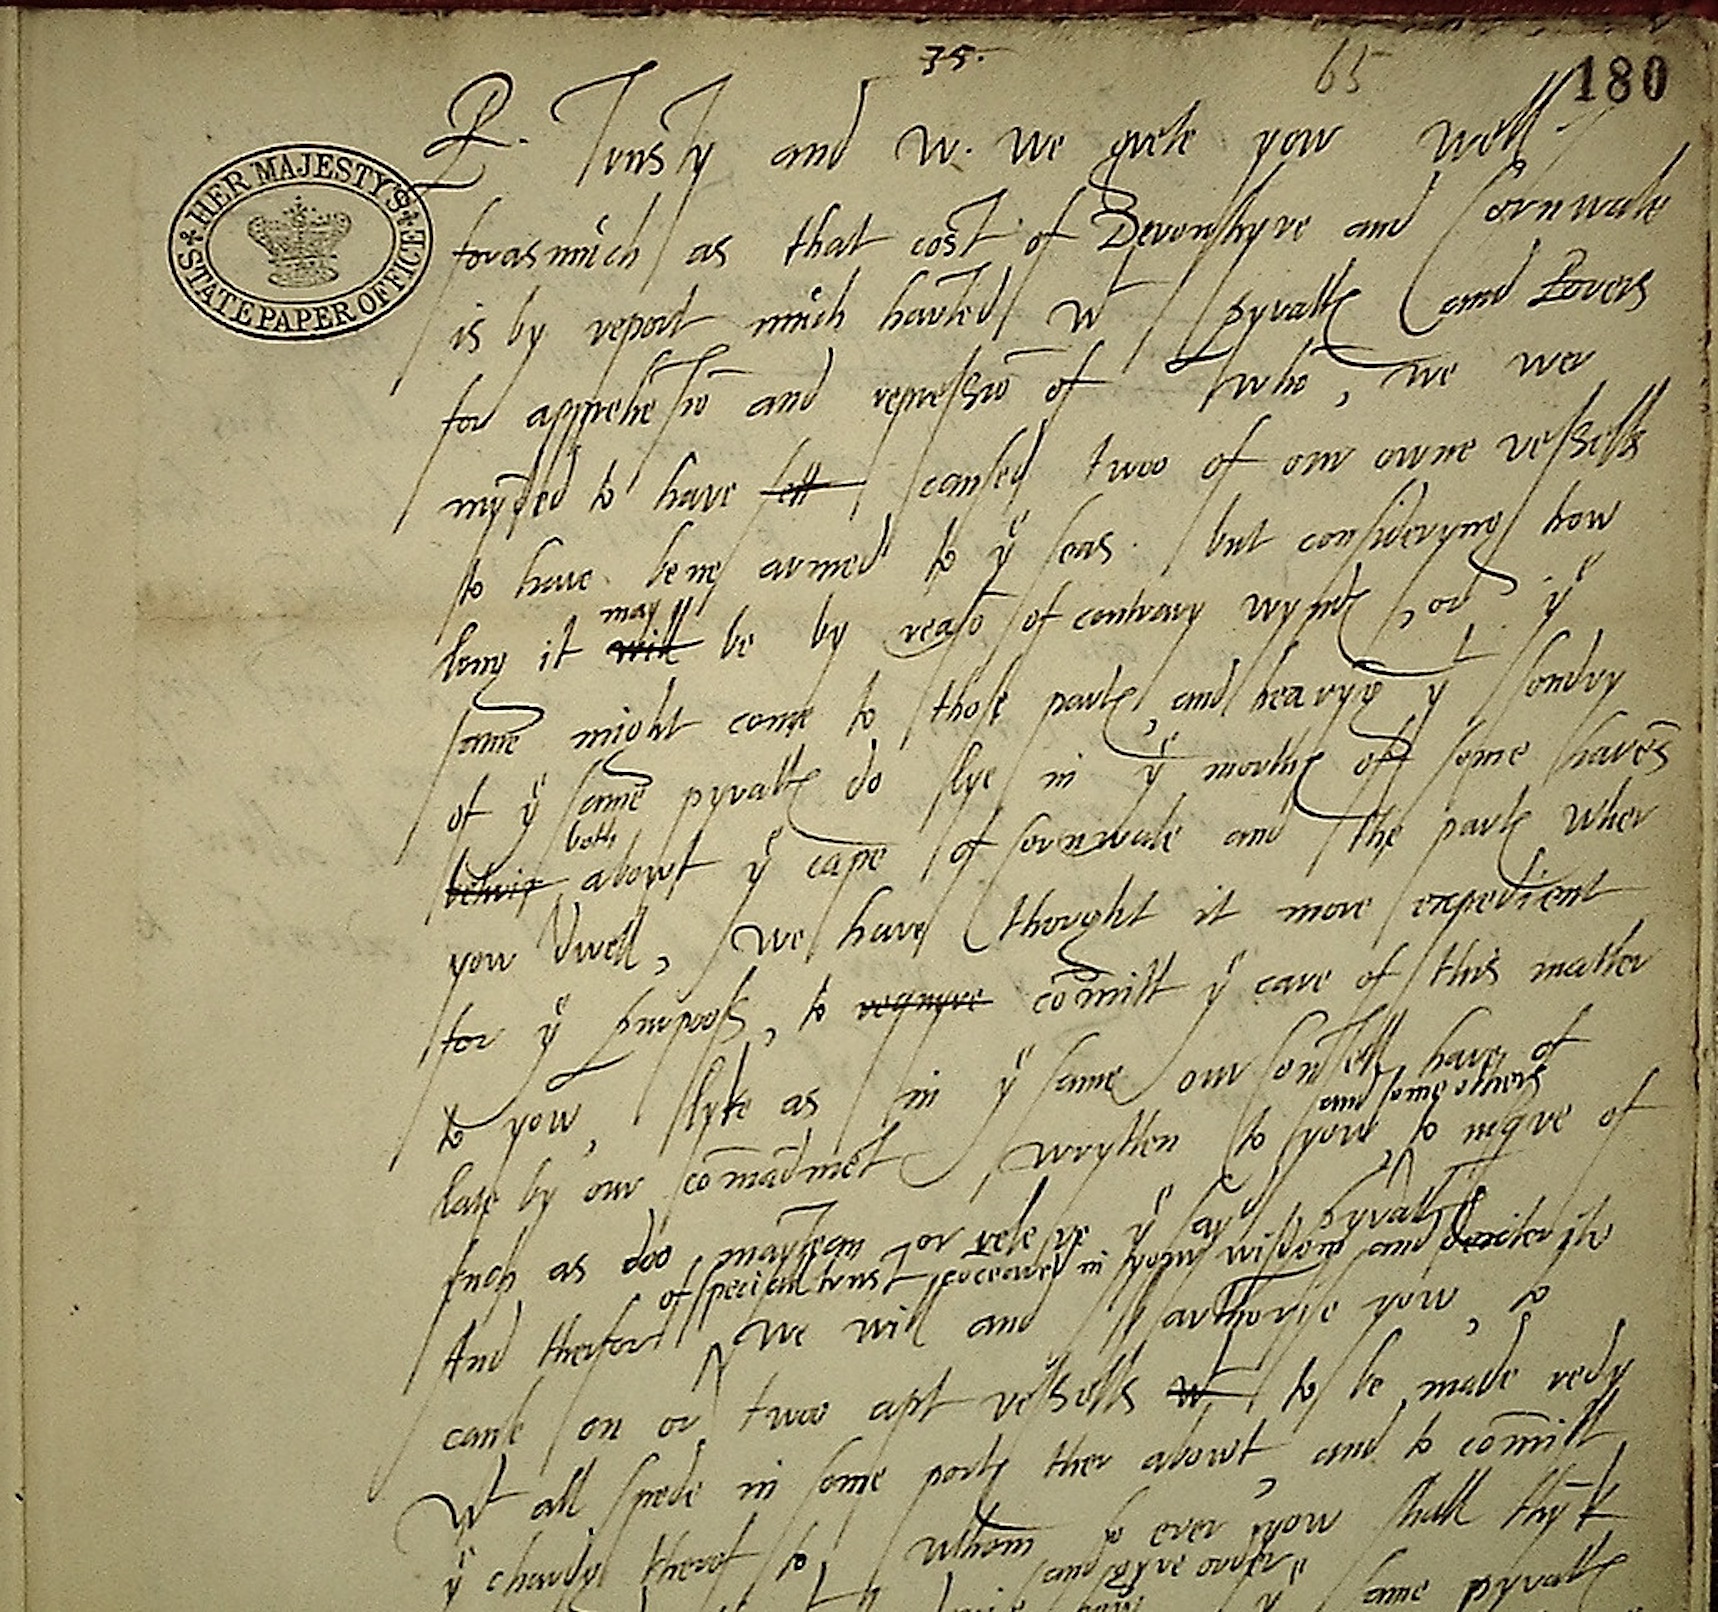 35. 65 180
HER MAJESTY'S STATE PAPER OFFICE
R. Trusty and w. we grete yow well
forasmuch as that cost of Devonshyre and Cornwale
is by report much hanted wt pyrattes and Rovers
for apprehēsiō and repressiō of whō, we wer
mȳded to have sett caused twoo of our owne vessells
to have bene armed to ye seas. but consideryng how
long it will may be by reasō of contrary wyndes, or ye
same might come to those partes, and hearyg yt sondry
of ye same pyrattes do lye in ye mouthes of some havēs
betwix both about ye cape of Cornwale and the partes wher
you dwell, we have thought it more expedient
for ye purpoose, to requyre cōmitt ye care of this matter
to yow, lyke as in ye same our Consell have of
late by our cōmādmēt wrytten to yow and some others to inqre of
such as doo mayntean or releve ye sayd pyrattes
And therfore of speciall trust in your wisdom and dexterite we will and authorise yow, to
cause on or twoo apt vessells wt to be made redy
wt all spede in some portes ther about, and to cōmitt
ye chardg therof to whom so ever yow shall thȳk
and gyve order ye same pyrattes